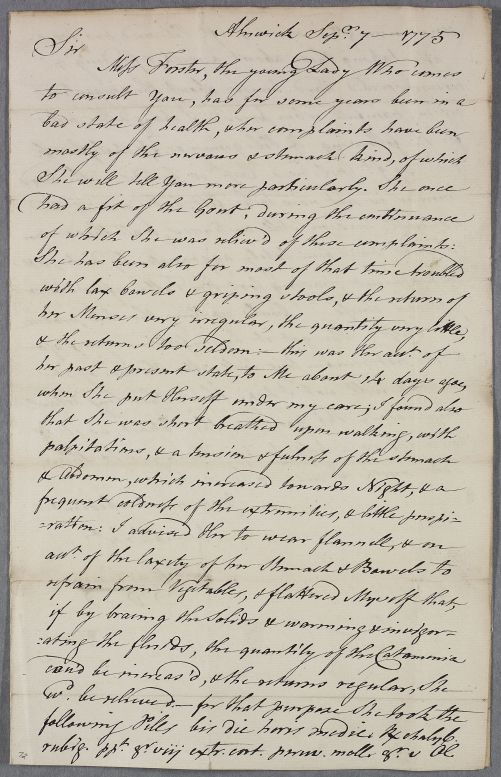 Alnwick Sepr. 7 — 1775
Sir
Miss Forster, the young Lady Who comes
to consult You, has for some years been in a
bad state of health, & her complaints have been
mostly of the nervous & stomach kind, of which
She will tell You more particularly. She once
had a fit of the Gout, during the continuance
of which She was reliev'd of these complaints:
She has been also for most of that time troubled
with lax bowels & griping stools, & the return of
her Menses very irregular, the quantity very little,
& the returns too seldom:— this was Her acct. of
her past & present state, to Me about 14 days agoe,
when She put Herself under my care; I found also
that She was short breathed upon walking, with
palpitations, & a tension & fulness of the stomach
& Abdomen, which increased towards Night, & a
frequent coldness of the extremities, & little perspi-
-ration: I advised Her to wear flannell, & on
acct. of the laxity of her Stomach & Bowels to
refrain from Vegetables, & flattered Myself that,
if by bracing the Solids & warming & invigor-
-ating the fluids, the quantity of the Catamenia
cou'd be increas'd, & the returns regular, She
wd. be relieved — for that purpose She took the
following Pills bis die horis medicis ℞ chalyb.
rubig. ppt. gr. viii extr. cort. peruv. moll. gr. v Ol